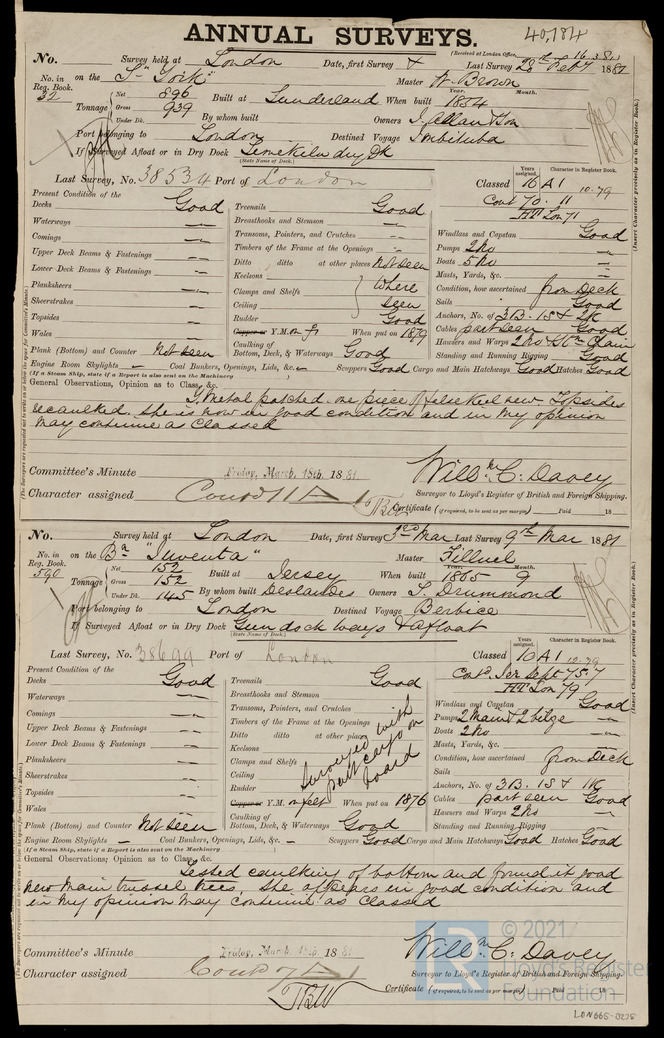 40,184
ANNUAL SURVEYS.
(Received at London Office, 16.3.81)
No. Survey held at London Date, first Survey & Last Survey 28th Feby 1881
No. in Reg. Book. 32 on the S "York" Master W. Brown
Tonnage Net 896 Gross 939 Under Dk. Built at Sunderland When built Years. 1854 Month.
By whom built Owners J. Allan & Son
Port belonging to London Destined Voyage Imbituba
If Surveyed Afloat or in Dry Dock Limekiln dry Dk
(State Name of Dock.)
Last Survey, No. 38534 Port of London Classed Years assigned. 16 A1 Character in Register Book. 10.79
Cont 70. 11
HT Lon 71
(Insert Character precisely as in Register Book.)
Present Condition of the
Decks Good Treenails Good Windlass and Capstan Good
Waterways " Breasthooks and Stemson " Pumps 2 No "
Comings " Transoms, Pointers, and Crutches " Boats 5 No "
Upper Deck Beams & Fastenings " Timbers of the Frame at the Openings " Masts, Yards, &c. "
Lower Deck Beams & Fastenings " Ditto ditto at other places Not seen Condition, how ascertained from Deck
Planksheers " Keelsons Where Sails Good
Sheerstrakes " Clamps and Shelfs seen Anchors, No. of 3B. 1S & 2K
Topsides " Ceiling Cables part seen Good
Wales " Rudder Good Hawsers and Warps 2 No Stm Chain
Copper or Y.M. on f When put on 1879 Standing and Running Rigging Good
Plank (Bottom) and Counter Not seen Caulking of Bottom, Deck, & Waterways Good
Engine Room Skylights — Coal Bunkers, Openings, Lids, &c. — Scuppers Good Cargo and Main Hatchways Good Hatches Good
(If a Steam Ship, state if a Report is also sent on the Machinery
General Observations, Opinion as to Class, &c.
Y. Metal patched. one piece of false keel new. Topsides
recaulked. She is now in good condition and in my opinion
may continue as Classed
(The Surveyors are requested not to write on or below the space for Committee's Minute.)
Committee's Minute Friday, March, 18th, 1881 Willm C. Davey
Character assigned Contd 11 A 1 Surveyor to Lloyd's Register of British and Foreign Shipping.
TBW Certificate (if required, to be sent as per margin) Paid 18
No. Survey held at London Date, first Survey 3rd Mar Last Survey 9th Mar 1881
No. in Reg. Book. 590 on the Bn "Iuventa" Master Filleul
Tonnage Net 152 Gross 152 Under Dk. 145 Built at Jersey When built Years. 1865 Month. 9
By whom built Deslandes Owners T. Drummond
Port belonging to London Destined Voyage Berbice
If Surveyed Afloat or in Dry Dock Gun dock ways & afloat
(State Name of Dock.)
Last Survey, No. 38699 Port of London Classed Years assigned. 10 A1 Character in Register Book. 10.79
Contd Jer Sept 75-7
HT Lon 79
(Insert Character precisely as in Register Book.)
Present Condition of the
Decks Good Treenails Good Windlass and Capstan Good
Waterways " Breasthooks and Stemson Pumps 2 Main & 2 bilge "
Comings " Transoms, Pointers, and Crutches Boats 2 No "
Upper Deck Beams & Fastenings " Timbers of the Frame at the Openings Masts, Yards, &c. "
Lower Deck Beams & Fastenings " Ditto ditto at other places Condition, how ascertained from Deck
Planksheers " Keelsons Sails Good
Sheerstrakes " Clamps and Shelfs Anchors, No. of 3B. 1S & 1K
Topsides " Ceiling Cables part seen Good
Wales " Rudder Hawsers and Warps 2 No
Surveyed with part cargo on board
Copper or Y.M. on felt When put on 1876 Standing and Running Rigging "
Plank (Bottom) and Counter Not seen Caulking of Bottom, Deck, & Waterways Good
Engine Room Skylights — Coal Bunkers, Openings, Lids, &c. — Scuppers Good Cargo and Main Hatchways Good Hatches Good
(If a Steam Ship, state if a Report is also sent on the Machinery
General Observations; Opinion as to Class, &c.
Tested caulking of bottom and found it good
new main trussel trees. She appears in good condition and
in my opinion may continue as Classed
(The Surveyors are requested not to write on or below the space for Committee's Minute.)
Committee's Minute Friday, March, 18th, 1881 Willm C. Davey
Character assigned Contd 7 A 1 Surveyor to Lloyd's Register of British and Foreign Shipping.
TBW Certificate (if required, to be sent as per margin) Paid 18
© 2021
Lloyd's Register
Foundation
LON665-0278